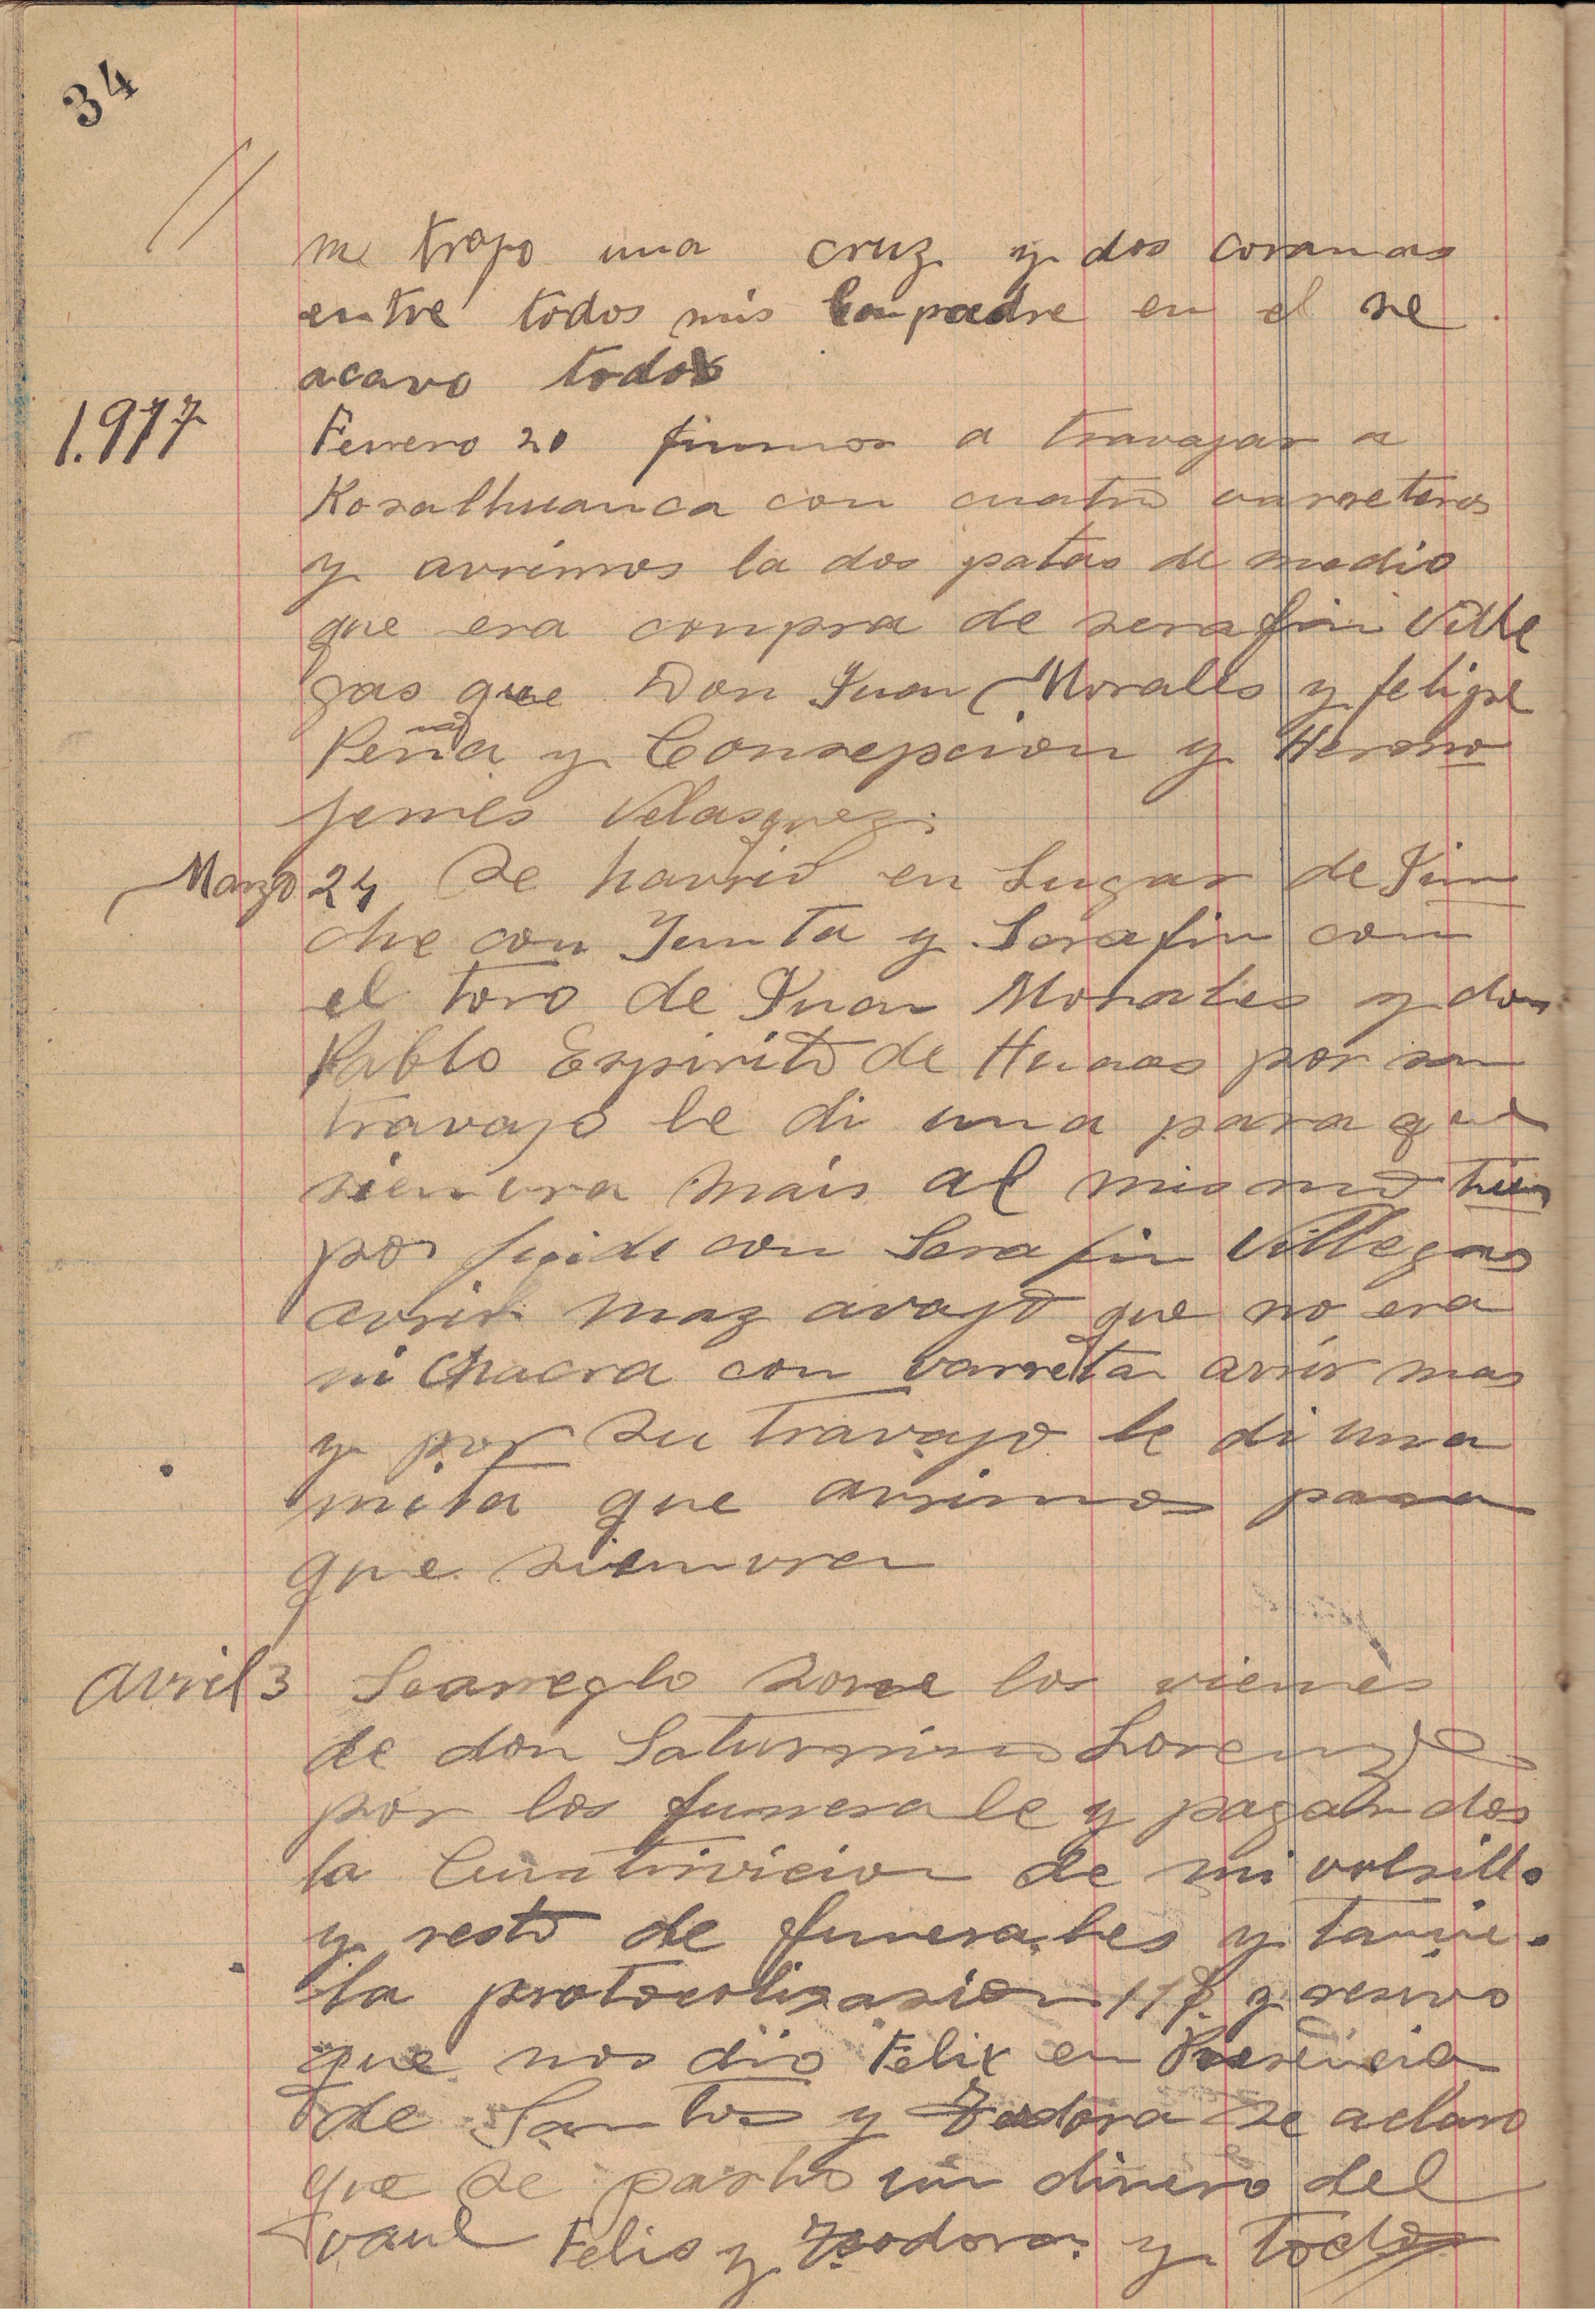 34
me trajo una cruz y dos coronas
entre todos mis Conpadre en el se
acavo todos
1.917
Fevrero 20 fuimos a travajar a
Kosalhuanca con cuatro varreteros
y avrimos la dos patas de medio
que era conpra de serafin Ville
gas que Don Juan Morales y felipe
Peña y Consepcion y Hermo
jenes Velasquez.
Marzo 24 Se havrio en Lugar de
che con Junta y Serafin con
el toro de Juan Morales y don
Pablo Espirito de por su
travajo le di una para que
sienvra mais al mismo tien
po con Serafin Villegas
avrir maz avajo que no era
ni Chacra con varreta avrir mas
y por su travajo le di una
mita que avrimos para
que sienvra
avril 3 Searreglo sovre los vienes
de don Saturnino Lorenzo
por los funerale y pagan dos
la de mi volsillo
y resto de funerales y tanvie.
la protocolisasion y resivo
que nos dio Felix en Presencia
de Santos y Teodora se aclaro
que se un dinero del
vaul Felis y Teodora y todos